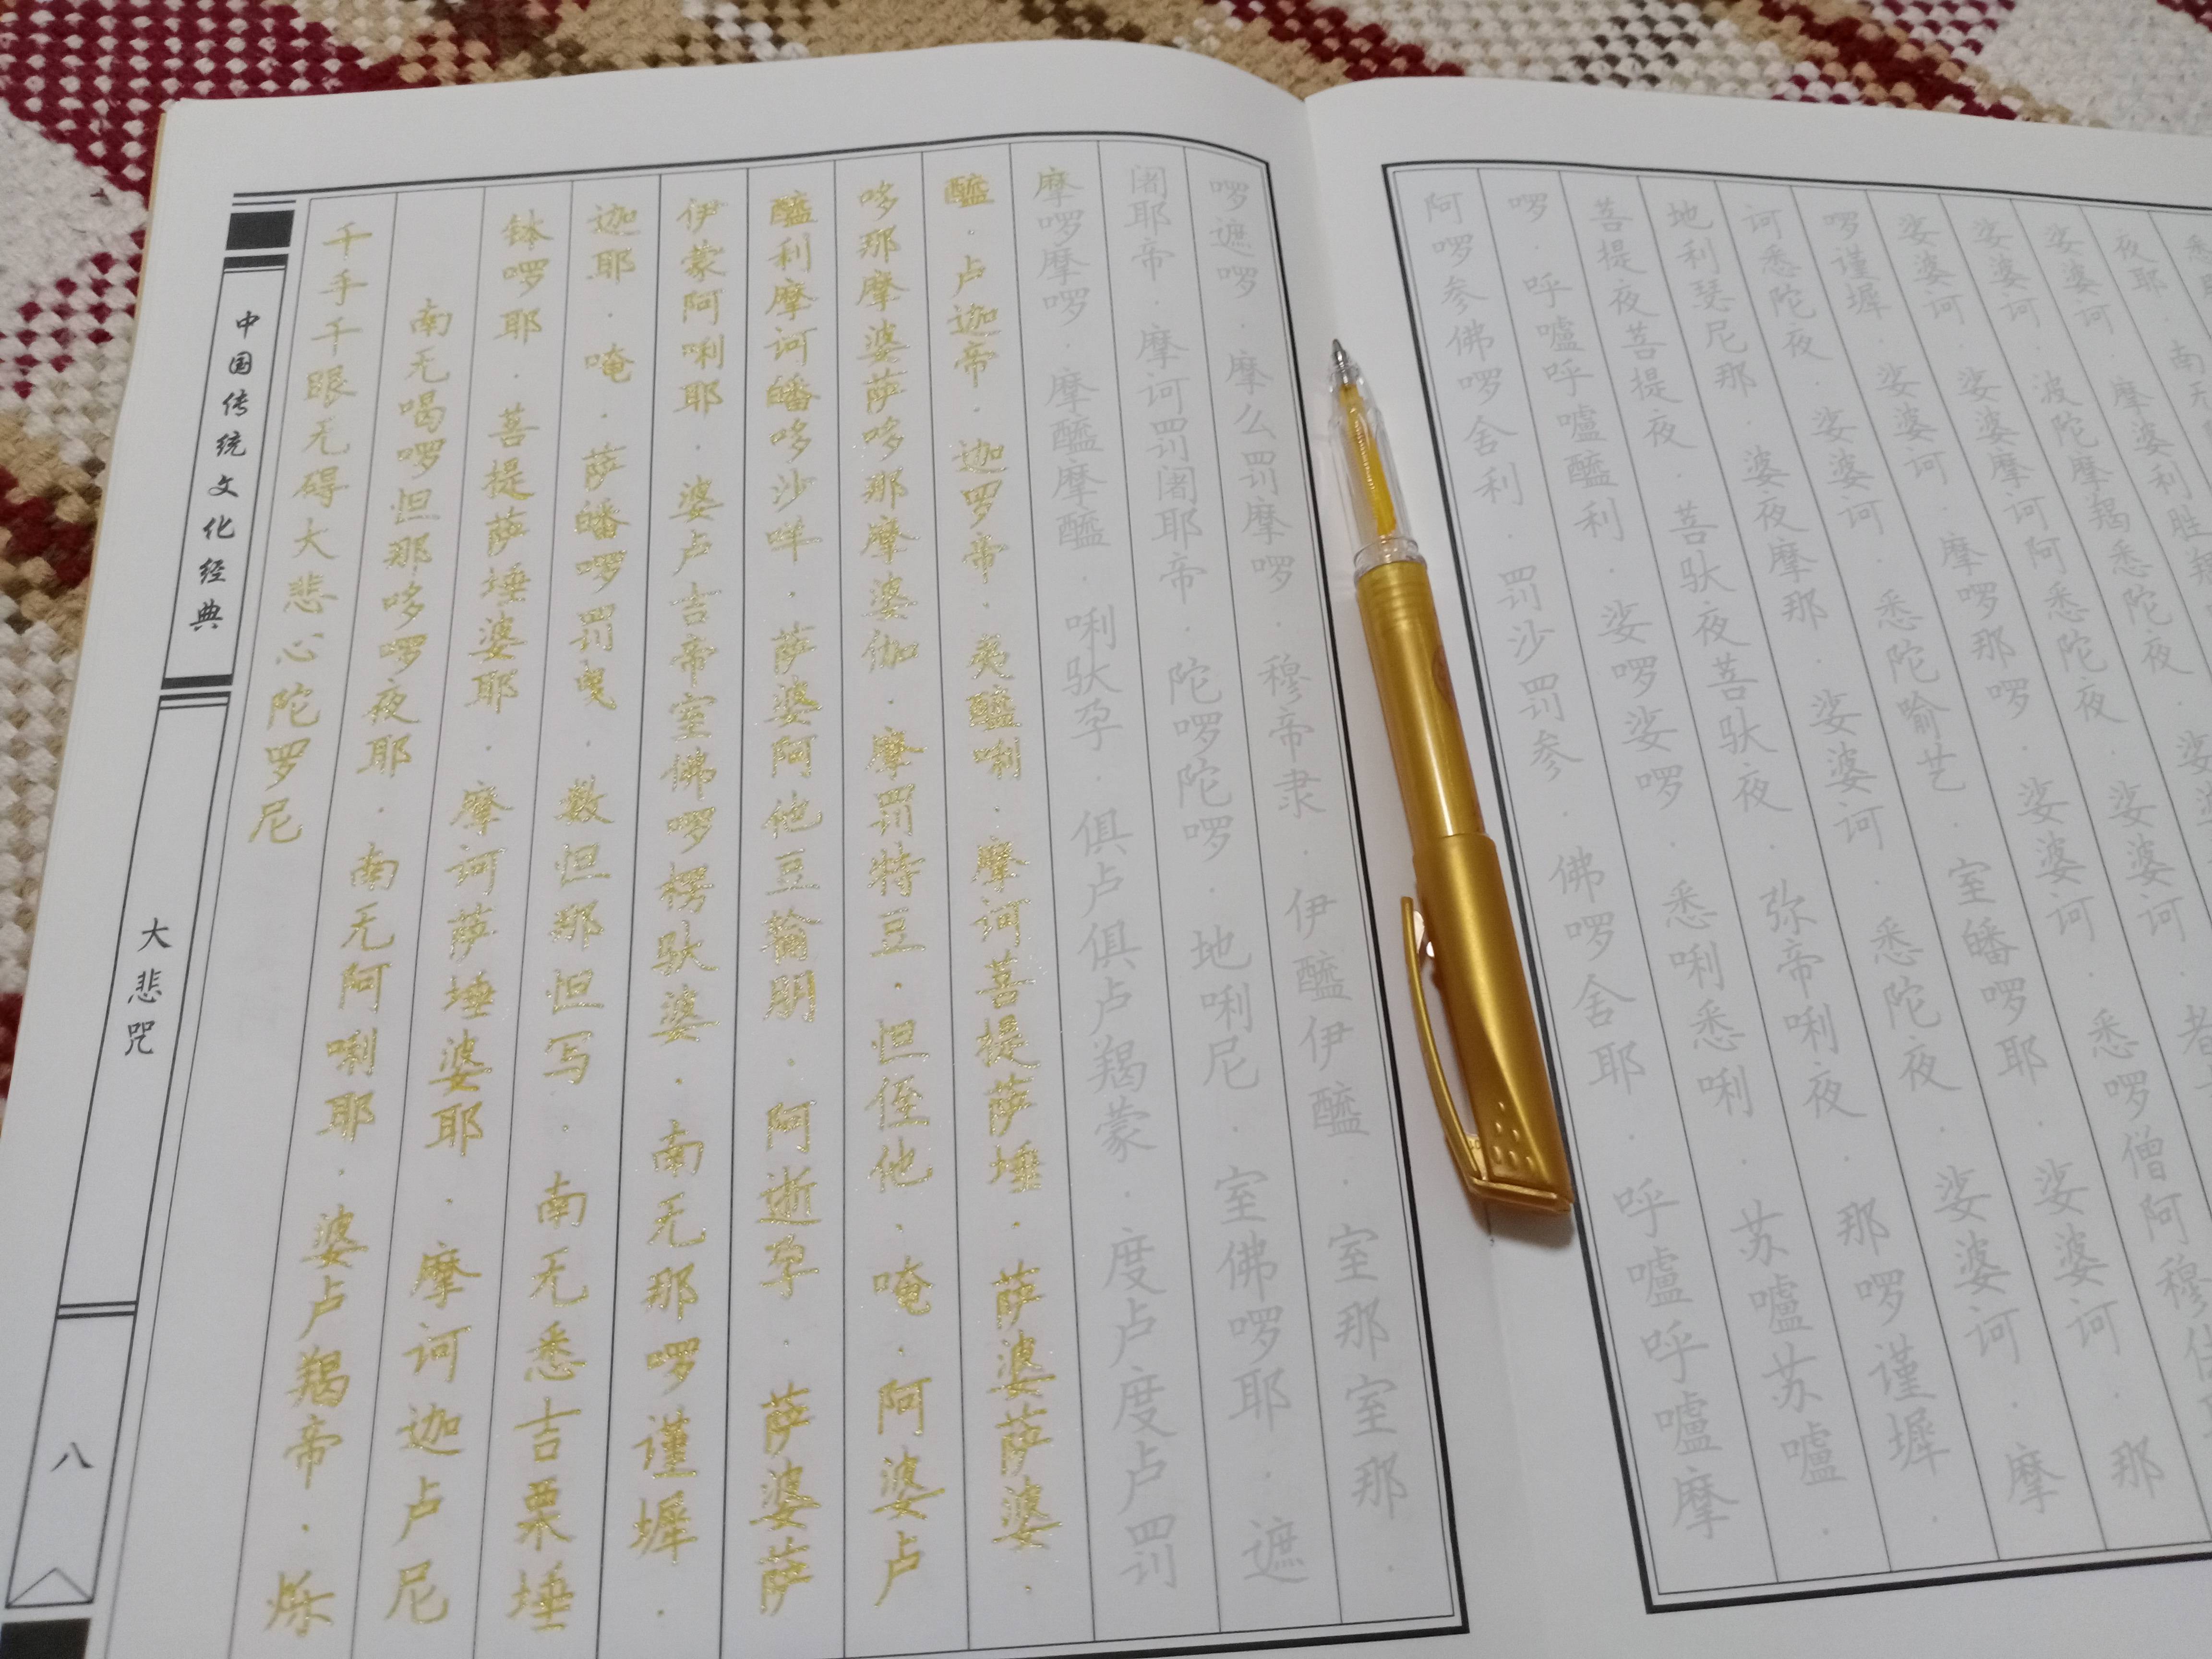 中国传统文化经典
大悲咒
八
千手千眼无碍大悲心陀罗尼
南无喝啰怛那哆啰夜耶·南无阿唎耶·婆卢羯帝·烁
钵啰耶·菩提萨埵婆耶·摩诃萨埵婆耶·摩诃迦卢尼
迦耶·唵·萨皤啰罚曳·数怛那怛写·南无悉吉栗埵
伊蒙阿唎耶·婆卢吉帝室佛啰楞驮婆·南无那啰谨墀·
醯利摩诃皤哆沙咩·萨婆阿他豆输朋·阿逝孕·萨婆萨
哆那摩婆萨哆那摩婆伽·摩罚特豆·怛侄他·唵·阿婆卢
醯·卢迦帝·迦罗帝·夷醯唎·摩诃菩提萨埵·萨婆萨婆·
摩啰摩啰·摩醯摩醯·唎驮孕·俱卢俱卢羯蒙·度卢度卢罚
阇耶帝·摩诃罚阇耶帝·陀啰陀啰·地唎尼·室佛啰耶·遮
啰遮啰·摩么罚摩啰·穆帝隶·伊醯伊醯·室那室那·
阿啰参佛啰舍利·罚沙罚参·佛啰舍耶·呼嚧呼嚧摩
啰·呼嚧呼嚧醯利·娑啰娑啰·悉唎悉唎·苏嚧苏嚧·
菩提夜菩提夜·菩驮夜菩驮夜·弥帝唎夜·那啰谨墀·
地利瑟尼那·婆夜摩那·娑婆诃·悉陀夜·娑婆诃·摩
诃悉陀夜·娑婆诃·悉陀喻艺·室皤啰耶·娑婆诃·那
啰谨墀·娑婆诃·摩啰那啰·娑婆诃·悉啰僧阿穆佉
娑婆诃·娑婆摩诃阿悉陀夜·娑婆诃·者
娑婆诃·波陀摩羯悉陀夜·娑
娑婆诃·摩婆利胜羯
夜耶·南无
悉